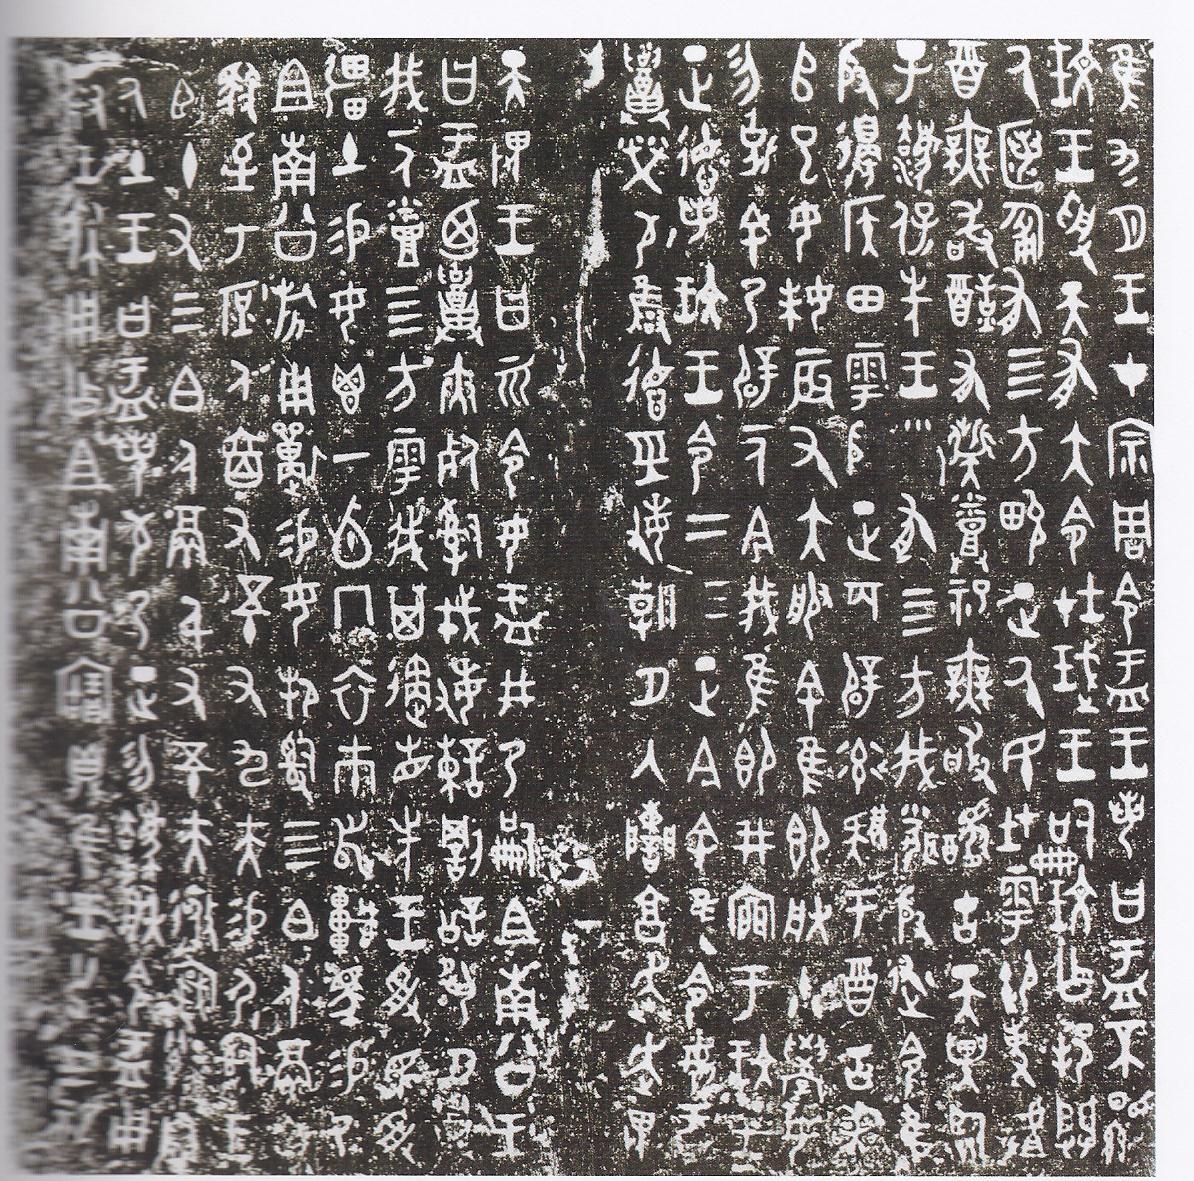 隹九月王才宗周令盂王若曰盂不顯
玟王受天有大令在珷王嗣玟乍邦闢
厥匿匍有四方畯正厥民在雩御事𠭯
酉無敢䤄有髭烝祀無敢擾古天異臨
子灋保先王有四方我聞殷述令隹
殷邊侯田雩殷正百辟率肄于酉古喪
𠂤巳女妹辰又大服余隹即朕小學女
勿克余乃辟一人今我隹即井㐭于玟王
正德若玟王令二三正今余隹令女盂
召榮敬雍德巠敏朝夕入讕享奔走畏
天畏王曰𠀠令女盂井乃嗣且南公王
曰盂廼召夾死司戎敏諫罰訟夙夕召
我一人烝四方雩我其遹省先王受民受
疆土易女鬯一卣冂衣巿舄車馬易乃
且南公旂用狩易女邦司四白人鬲自
馭至于庶人六百又五十又九夫易尸司王
臣十又三白人鬲千又五十夫遷自
厥土王曰盂若敬乃正勿灋朕令盂用
對王休用乍且南公寶鼎隹王廿又三祀